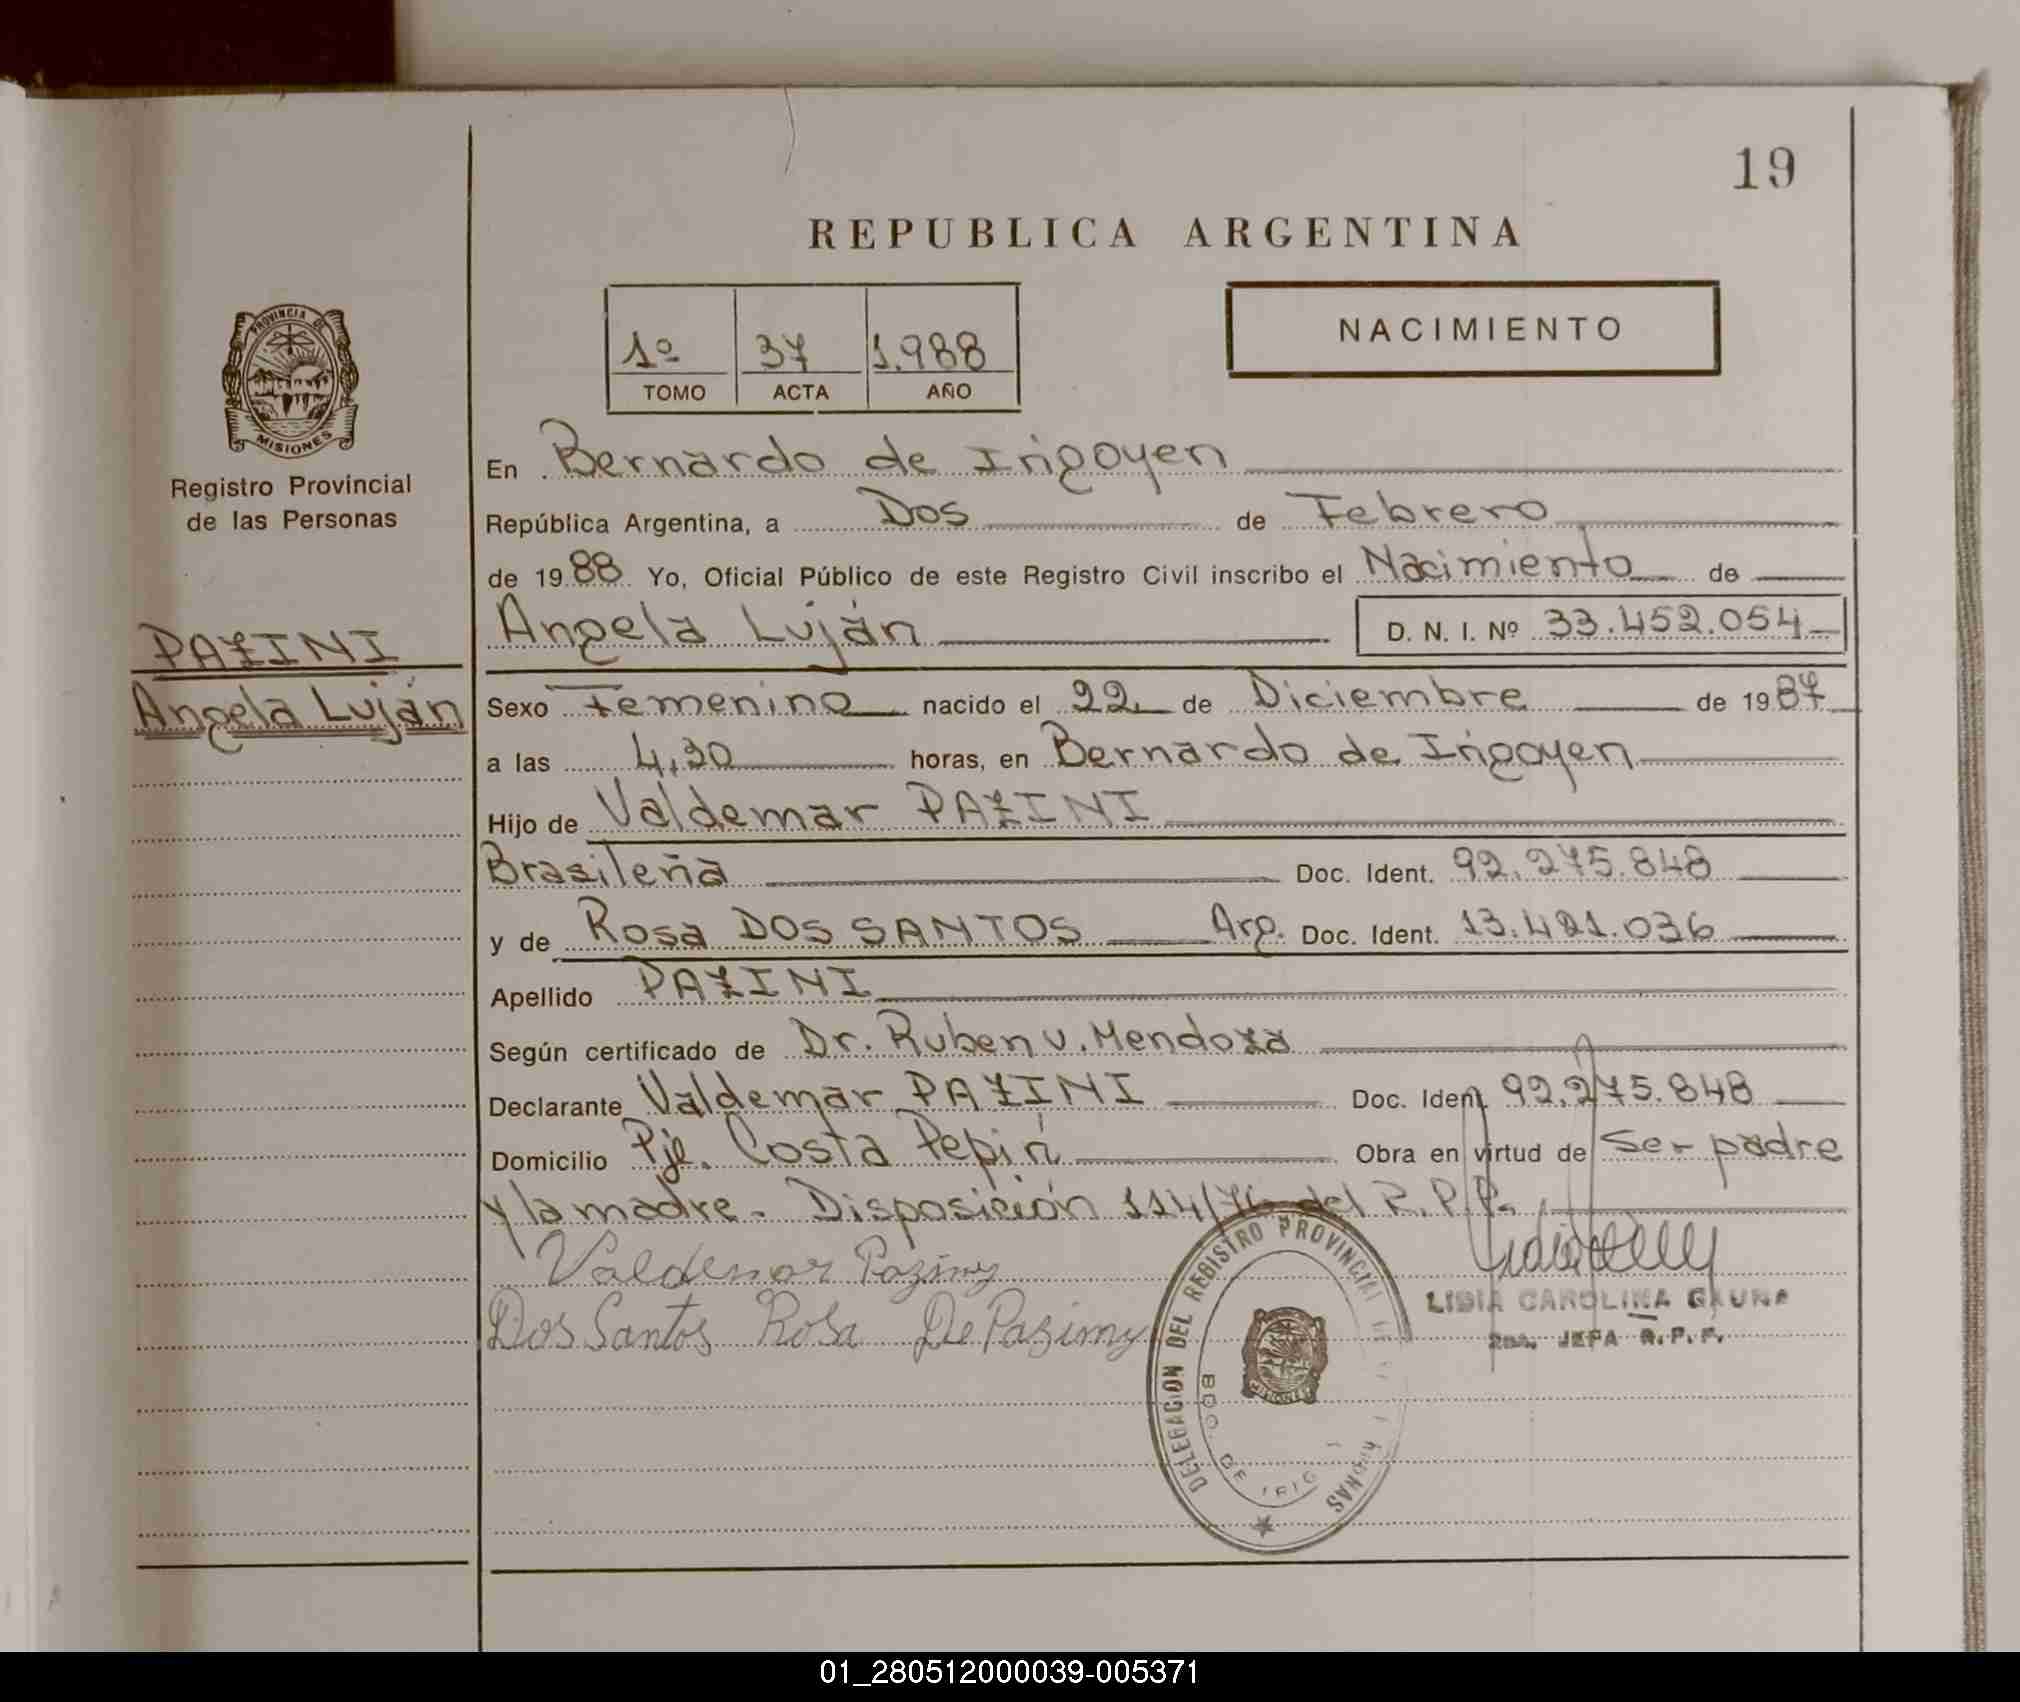 19
REPUBLICA ARGENTINA
1º 37 1.988
TOMO ACTA AÑO
NACIMIENTO
PROVINCIA DE
MISIONES
Registro Provincial
de las Personas
PAZINI
Angela Luján
En Bernardo de Irigoyen
República Argentina, a Dos de Febrero
de 1988 Yo, Oficial Público de este Registro Civil inscribo el Nacimiento de
Angela Luján D. N. I. Nº 33.452.054
Sexo Femenino nacido el 22 de Diciembre de 1987
a las 4,30 horas, en Bernardo de Irigoyen
Hijo de Valdemar PAZINI
Brasileña Doc. Ident. 92.275.848
y de Rosa DOS SANTOS Arg. Doc. Ident. 13.421.036
Apellido PAZINI
Según certificado de Dr. Ruben v. Mendoza
Declarante Valdemar PAZINI Doc. Ident. 92.275.848
Domicilio Pje. Costa Pepirí Obra en virtud de Ser padre
y la madre. Disposición 114/76 del R.P.P.
Valdemar Pazimy
Dos Santos Rosa De Pazimy
DELEGACION DEL REGISTRO PROVINCIAL DE
BDO. DE
LIDIA CAROLINA GAUNA
2da. JEFA R.P.P.
01_280512000039-005371